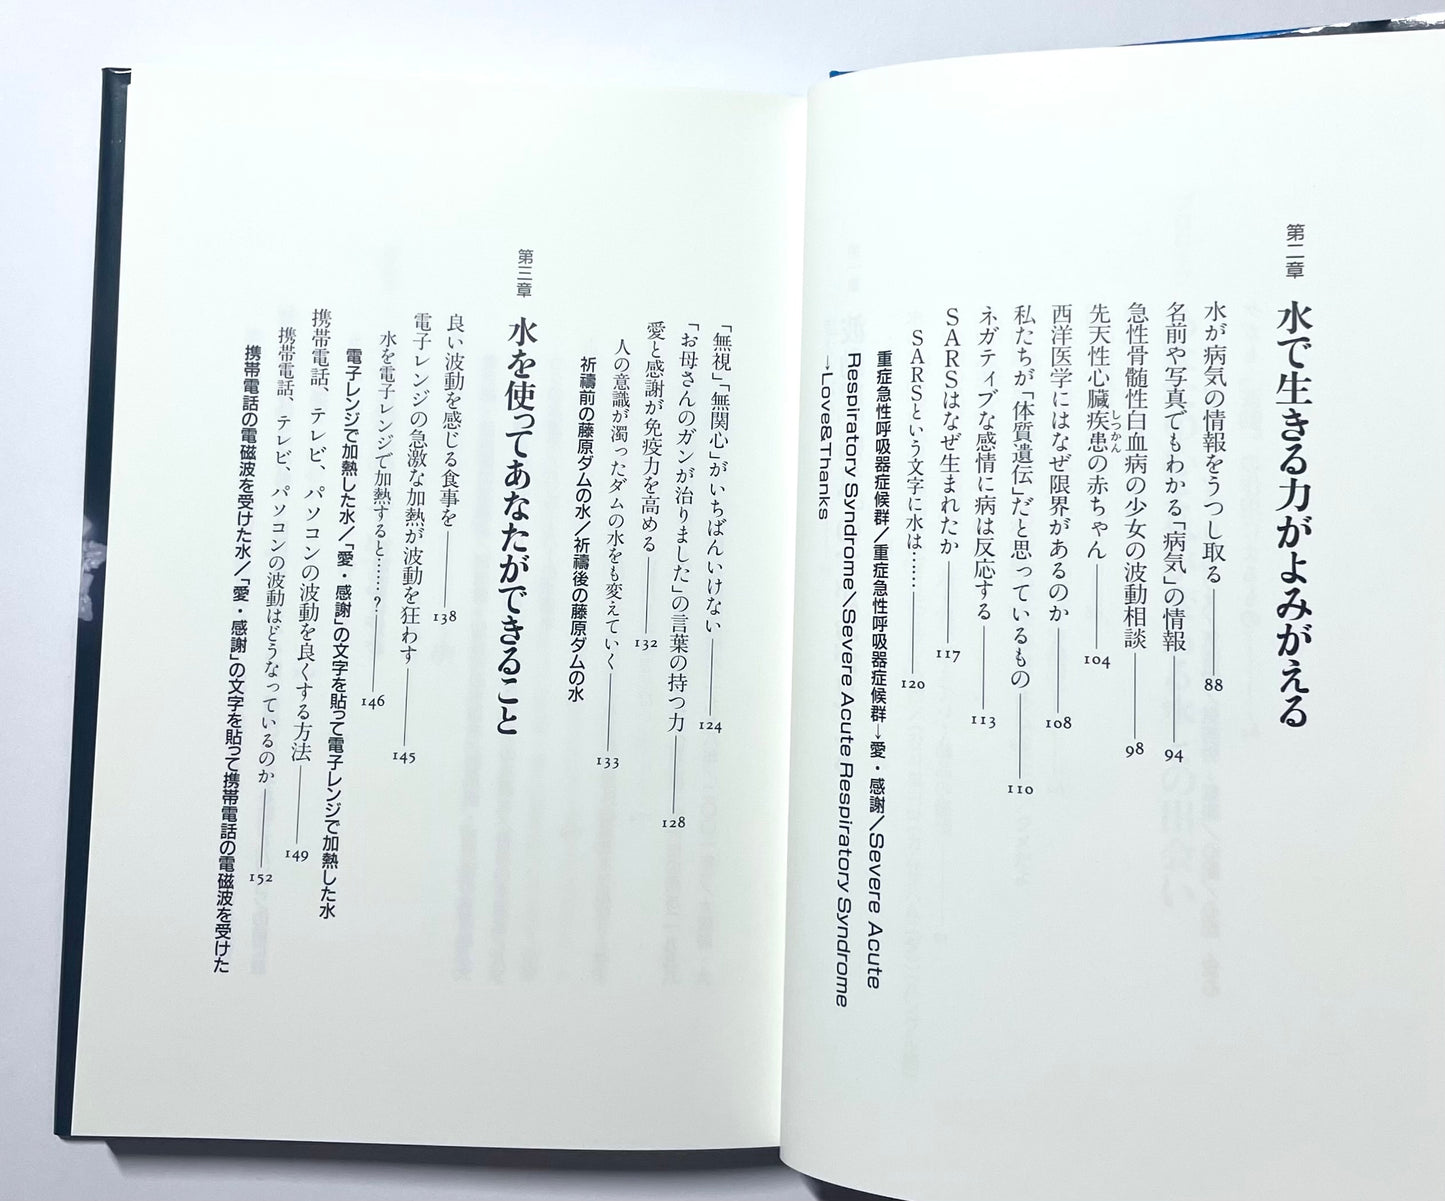 第二章 水で生きる力がよみがえる
水が病気の情報をうつし取る 88
名前や写真でもわかる「病気」の情報 94
急性骨髄性白血病の少女の波動相談 98
先天性心臓疾患の赤ちゃん 104
しつかん
西洋医学にはなぜ限界があるのか 108
私たちが「体質遺伝」だと思っているもの 110
ネガティブな感情に病は反応する 113
SARSはなぜ生まれたか 117
SARSという文字に水は…… 120
重症急性呼吸器症候群/重症急性呼吸器症候群→愛・感謝/Severe Acute
Respiratory Syndrome/Severe Acute Respiratory Syndrome
→Love&Thanks
「無視」「無関心」がいちばんいけない 124
「お母さんのガンが治りました」の言葉の持つ力 128
愛と感謝が免疫力を高める 132
人の意識が濁ったダムの水をも変えていく 133
祈禱前の藤原ダムの水/祈禱後の藤原ダムの水
第三章 水を使ってあなたができること
良い波動を感じる食事を 138
電子レンジの急激な加熱が波動を狂わす 145
水を電子レンジで加熱すると……? 146
電子レンジで加熱した水/「愛・感謝」の文字を貼って電子レンジで加熱した水
携帯電話、テレビ、パソコンの波動を良くする方法 149
携帯電話、テレビ、パソコンの波動はどうなっているのか 152
携帯電話の電磁波を受けた水/「愛・感謝」の文字を貼って携帯電話の電磁波を受けた